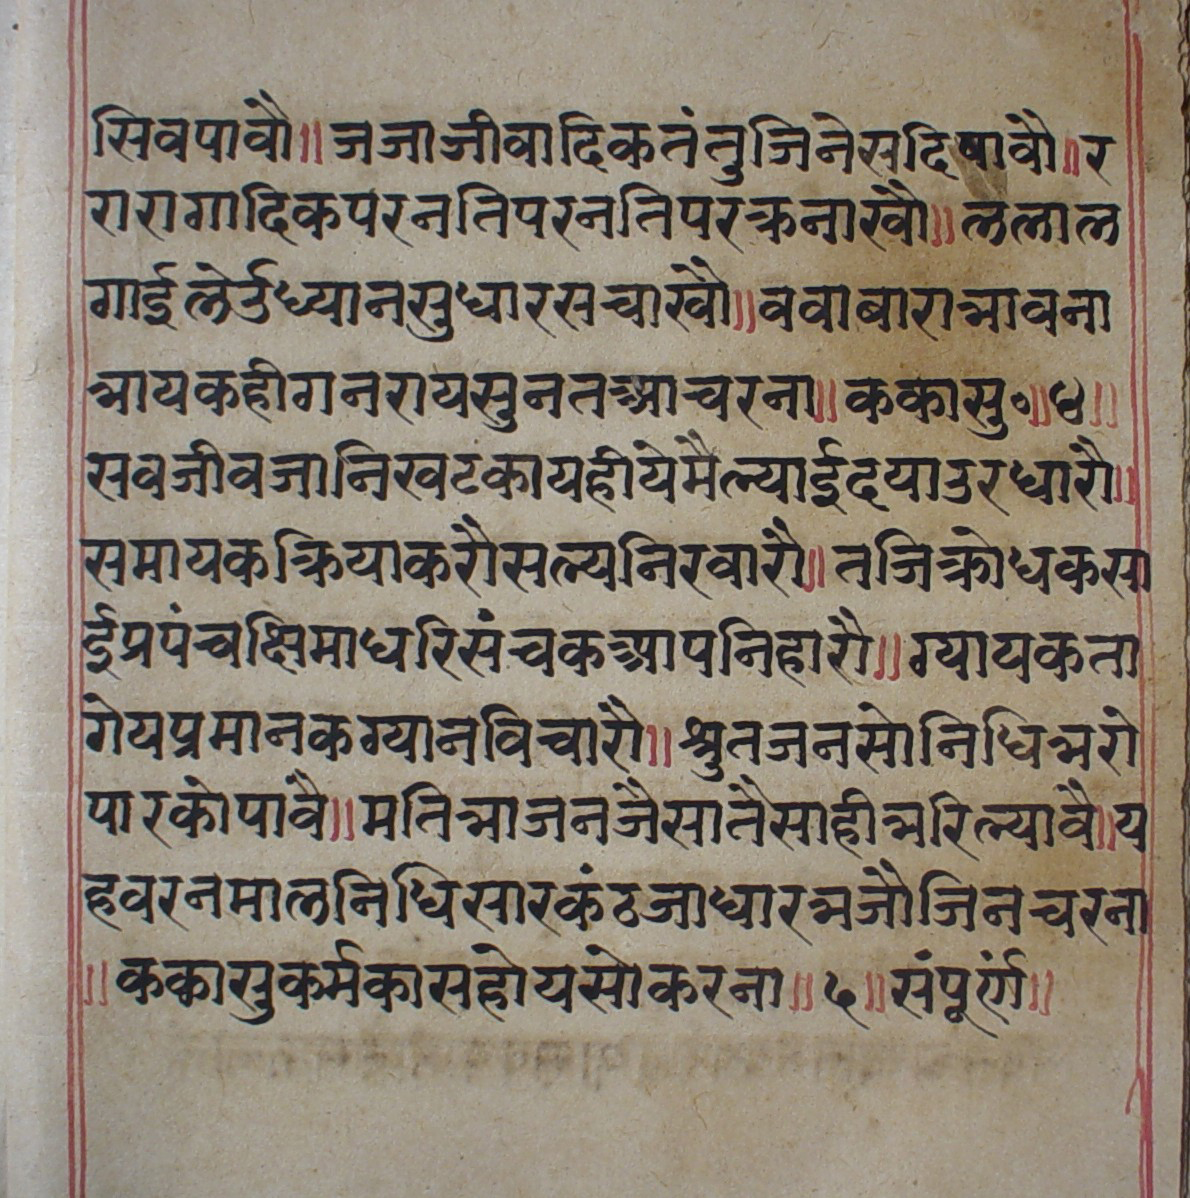 सिवपावौ॥जजाजीवादिकतंतुजिनेसदिषावौ॥र
रारागादिकपरनतिपरनतिपरक्रनाखौ॥ललाल
गाईलेउध्यानसुधारसचाखौ॥ववाबाराभावना
भायकहीगनरायसुनतआचरना॥ककासु०॥४॥
सवजीवजानिखटकायहीयेमैल्याईदयाउरधारौ॥
समायकक्रियाकरौसल्यनिरवारौ॥तजिक्रोधकसा
ईप्रपंचक्षिमाधरिसंचकआपनिहारौ॥ग्यायकता
गेयप्रमानकग्यानविचारौ॥श्रुतजनसोनिधिभरो
पारकोपावै॥मतिभाजनजैसातैसाहीभरिल्यावै॥य
हवरनमालनिधिसारकंठजाधारभजौजिनचरना
॥ककासुकर्मकासहोयसोकरना॥५॥संपूर्ण॥